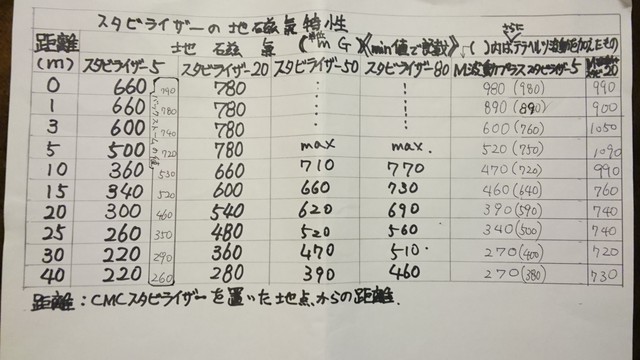 スタビライザーの地磁氣特性
距離 地磁氣 (単位mG)《min値で記載》 ( )内はさらにテラヘルツ波動を加えたもの
(m) スタビライザー5 スタビライザー20 スタビライザー50 スタビライザー80 M波動プラススタビライザー5
0 660 790 780 980(980) 990
1 660 780 780 890(890) 900
3 600 740 780 600(760) 1050
5 500 720 780 max max. 520(750) 1090
10 360 530 660 710 770 470(720) 990
15 340 520 600 660 730 460(640) 760
20 300 460 540 620 690 390(590) 740
25 260 350 480 520 560 340(500) 740
30 220 290 360 470 510. 270(400) 720
40 220 260 280 390 460 270(380) 730
距離:CMCスタビライザーを置いた地点からの距離.